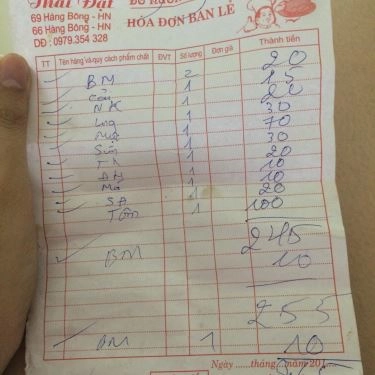 Thái Đạt
69 Hàng Bông - HN
66 Hàng Bông - HN
DĐ: 0979.354 328
HÓA ĐƠN BÁN LẺ
TT Tên hàng và quy cách phẩm chất ĐVT Số lượng Đơn giá Thành tiền
BM 2 20
1 15
NK 1 20
1 30
Mực 1 70
Sụn 1 30
1 20
1 10
Má 1 10
SA 1 20
Tôm 1 100
245
BM 10
255
BM 1 10
Ngày ......tháng......năm 201